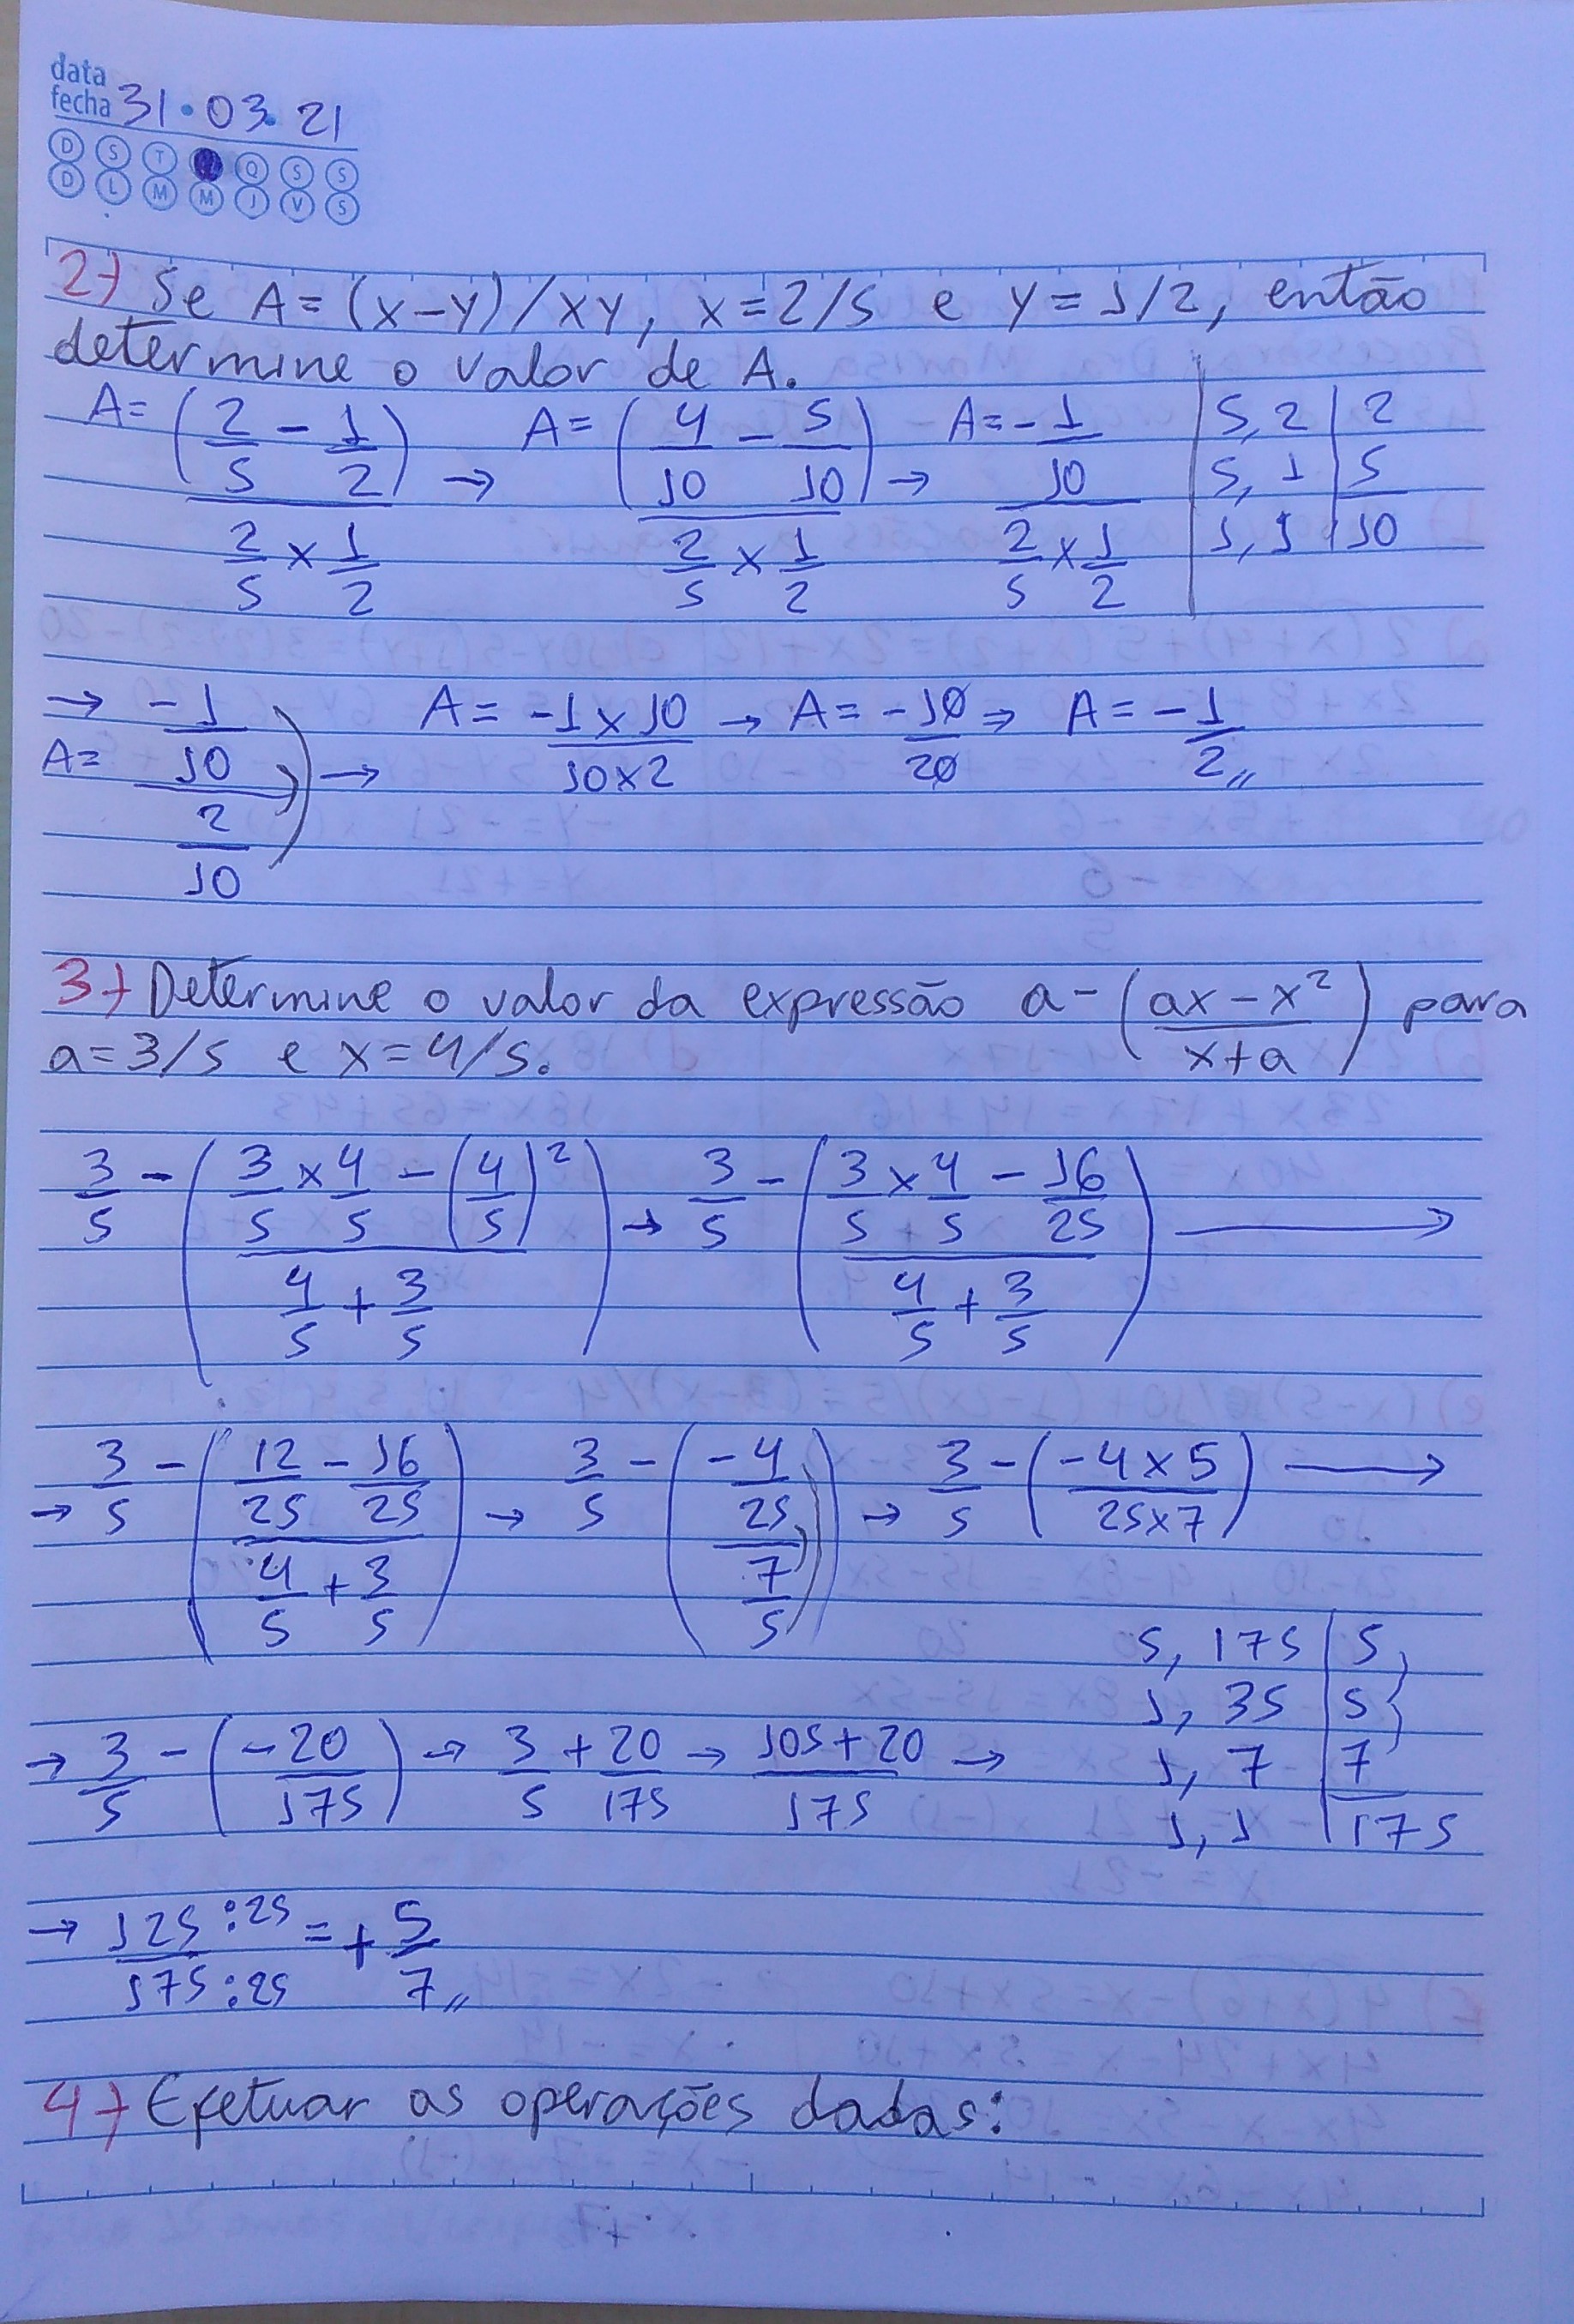 data
fecha 31.03.21
D S T Q S S
D L M M J V S
2) Se A = (x-y)/xy, x=2/5 e y=1/2, então
determine o valor de A.
A = (2/5 - 1/2) / (2/5 x 1/2) → A = (4/10 - 5/10) / (2/5 x 1/2) → A = (-1/10) / (2/5 x 1/2)
5, 2 | 2
5, 1 | 5
1, 1 | 10
→ A = (-1/10) / (2/10) → A = (-1 x 10)/(10 x 2) → A = -10/20 → A = -1/2 //
3) Determine o valor da expressão a - ((ax - x²)/(x+a)) para
a=3/5 e x=4/5.
3/5 - ((3/5 x 4/5 - (4/5)²) / (4/5 + 3/5)) → 3/5 - ((3/5 x 4/5 - 16/25) / (4/5 + 3/5)) →
→ 3/5 - ((12/25 - 16/25) / (4/5 + 3/5)) → 3/5 - ((-4/25) / (7/5)) → 3/5 - ((-4 x 5)/(25 x 7)) →
5, 175 | 5
1, 35 | 5
1, 7 | 7
1, 1 | 175
→ 3/5 - (-20/175) → 3/5 + 20/175 → (105 + 20)/175 →
→ 125:25 / 175:25 = + 5/7 //
4) Efetuar as operações dadas: